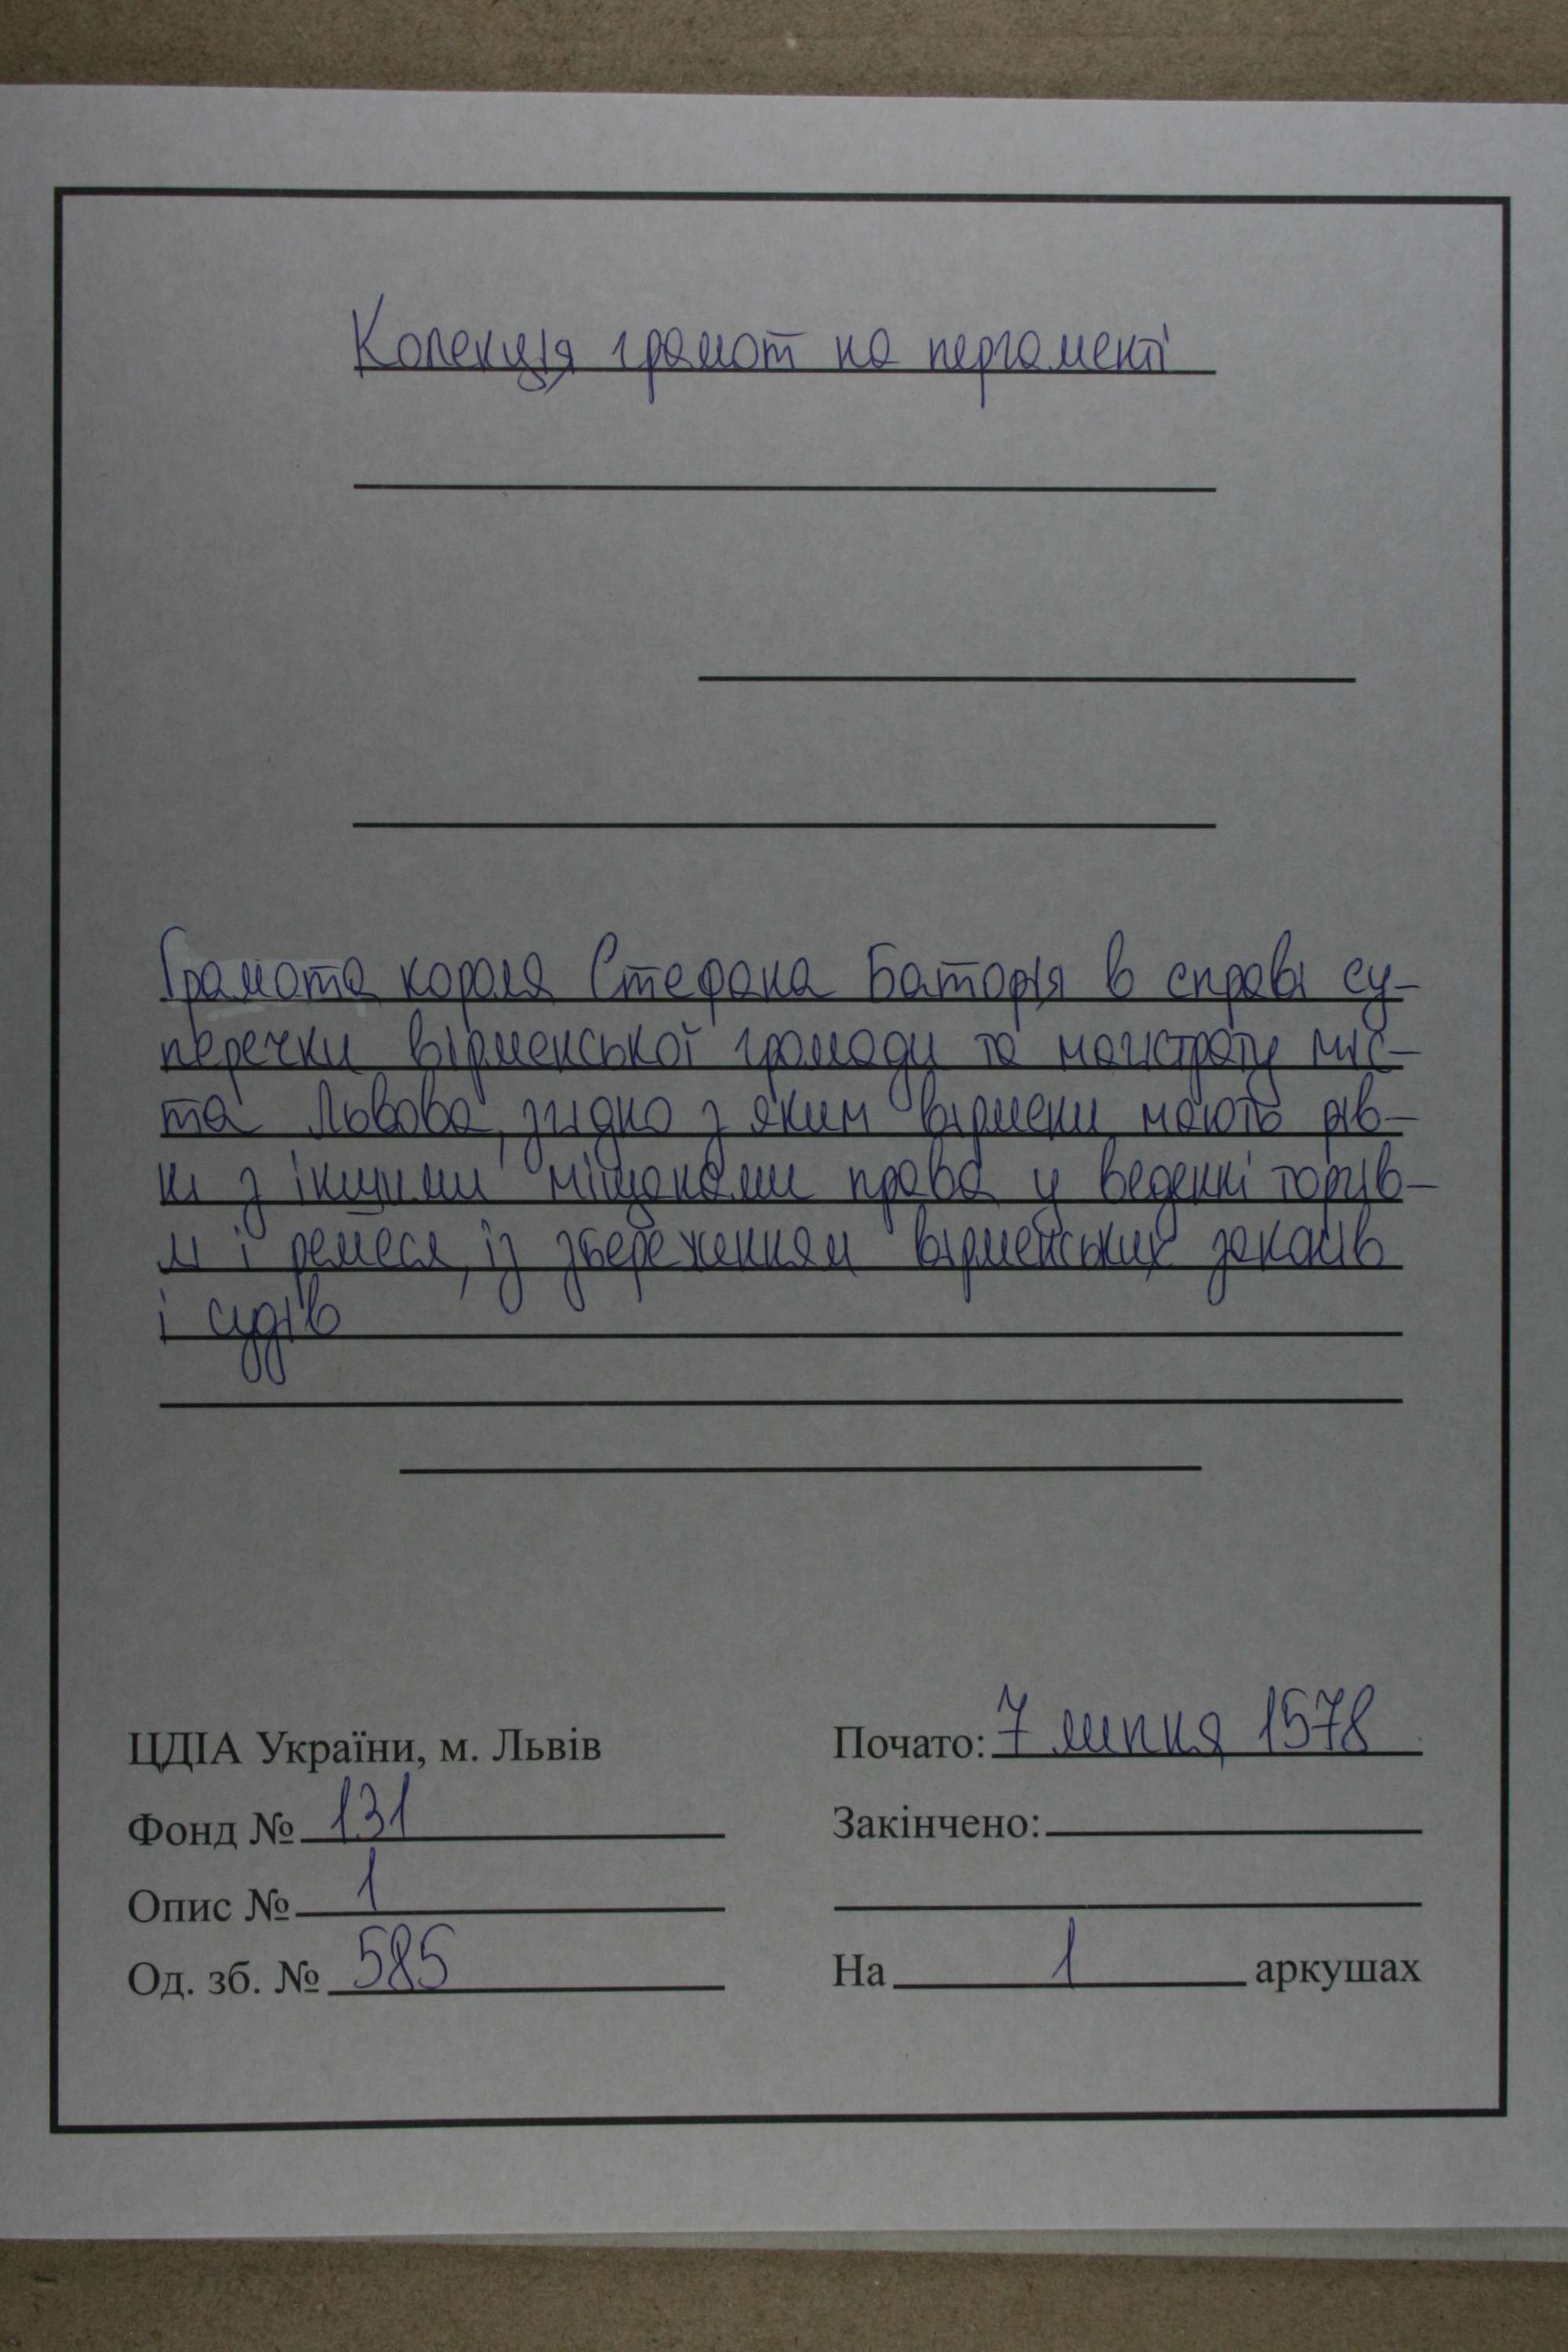 Колекція грамот на пергаменті
Грамота короля Стефана Баторія в справі су-
перечки вірменської громади та магістрату міс-
та Львова, згідно з яким вірмени мають рів-
ні з іншими міщанами права у веденні торгів-
лі і ремесл, із збереженням вірменських законів
і судів
ЦДІА України, м. Львів
Почато: 7 липня 1578
Фонд № 131
Закінчено:
Опис № 1
Од. зб. № 585
На 1 аркушах